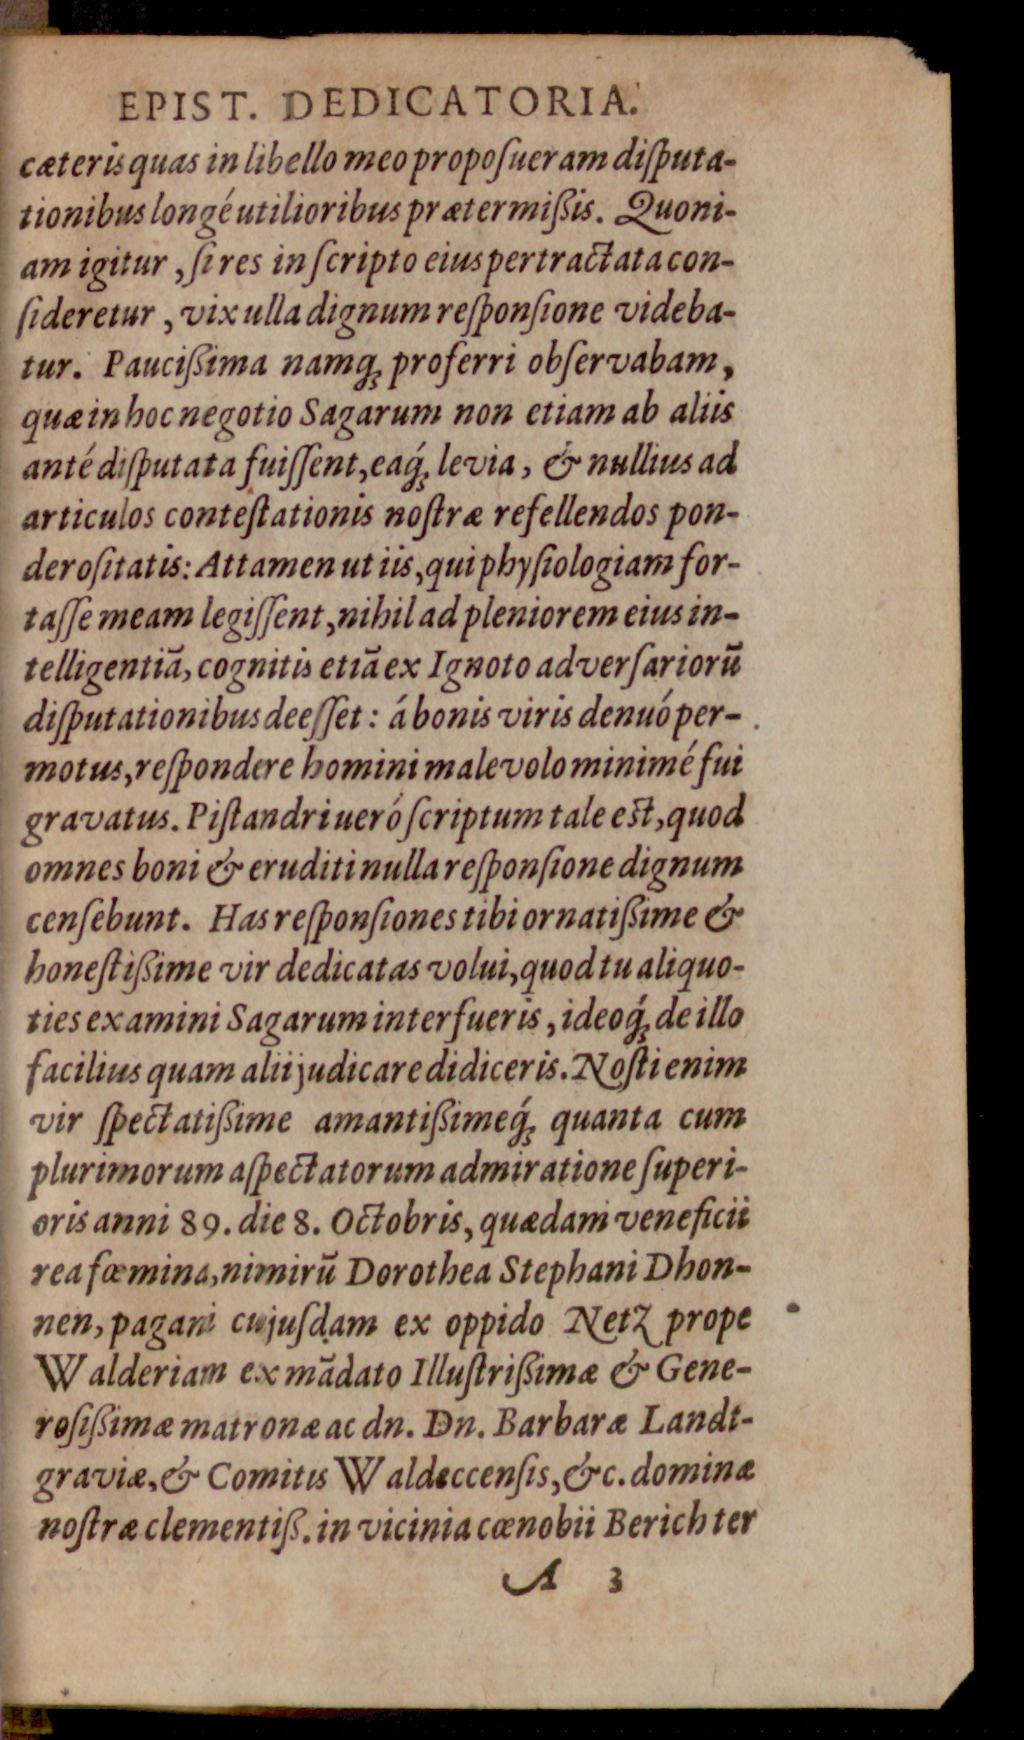 EPIST. DEDICATORIA.
cæteris quas in libello meo propoſueram diſputa-
tionibus longé utilioribus prætermißis. Quoni-
am igitur, ſi res in ſcripto eius pertractata con-
ſideretur, vix ulla dignum reſponſione videba-
tur. Paucißima namq́; proferri obſervabam,
quæ in hoc negotio Sagarum non etiam ab aliis
anté diſputata fuiſſent, eaq́; levia, & nullius ad
articulos conteſtationis noſtræ refellendos pon-
deroſitatis: Attamen ut iis, qui phyſiologiam for-
taſſe meam legiſſent, nihil ad pleniorem eius in-
telligentiā, cognitis etiā ex Ignoto adverſariorū
diſputationibus deeſſet: á bonis viris denuó per-
motus, reſpondere homini malevolo minimé fui
gravatus. Piſtandri ueró ſcriptum tale eſt, quod
omnes boni & eruditi nulla reſponſione dignum
cenſebunt. Has reſponſiones tibi ornatißime &
honeſtißime vir dedicatas volui, quod tu aliquo-
ties examini Sagarum interfueris, ideoq́; de illo
facilius quam alii judicare didiceris. Noſti enim
vir ſpectatißime amantißimeq́; quanta cum
plurimorum aſpectatorum admiratione ſuperi-
oris anni 89. die 8. Octobris, quædam veneficii
rea fœmina, nimirū Dorothea Stephani Dhon-
nen, pagani cujuſdam ex oppido Netz prope
Walderiam ex mādato Illuſtrißimæ & Gene-
roſißimæ matronæ ac dn. Dn. Barbaræ Landt-
graviæ, & Comitis Waldeccenſis, &c. dominæ
noſtræ clementiß. in vicinia cœnobii Berich ter
A 3